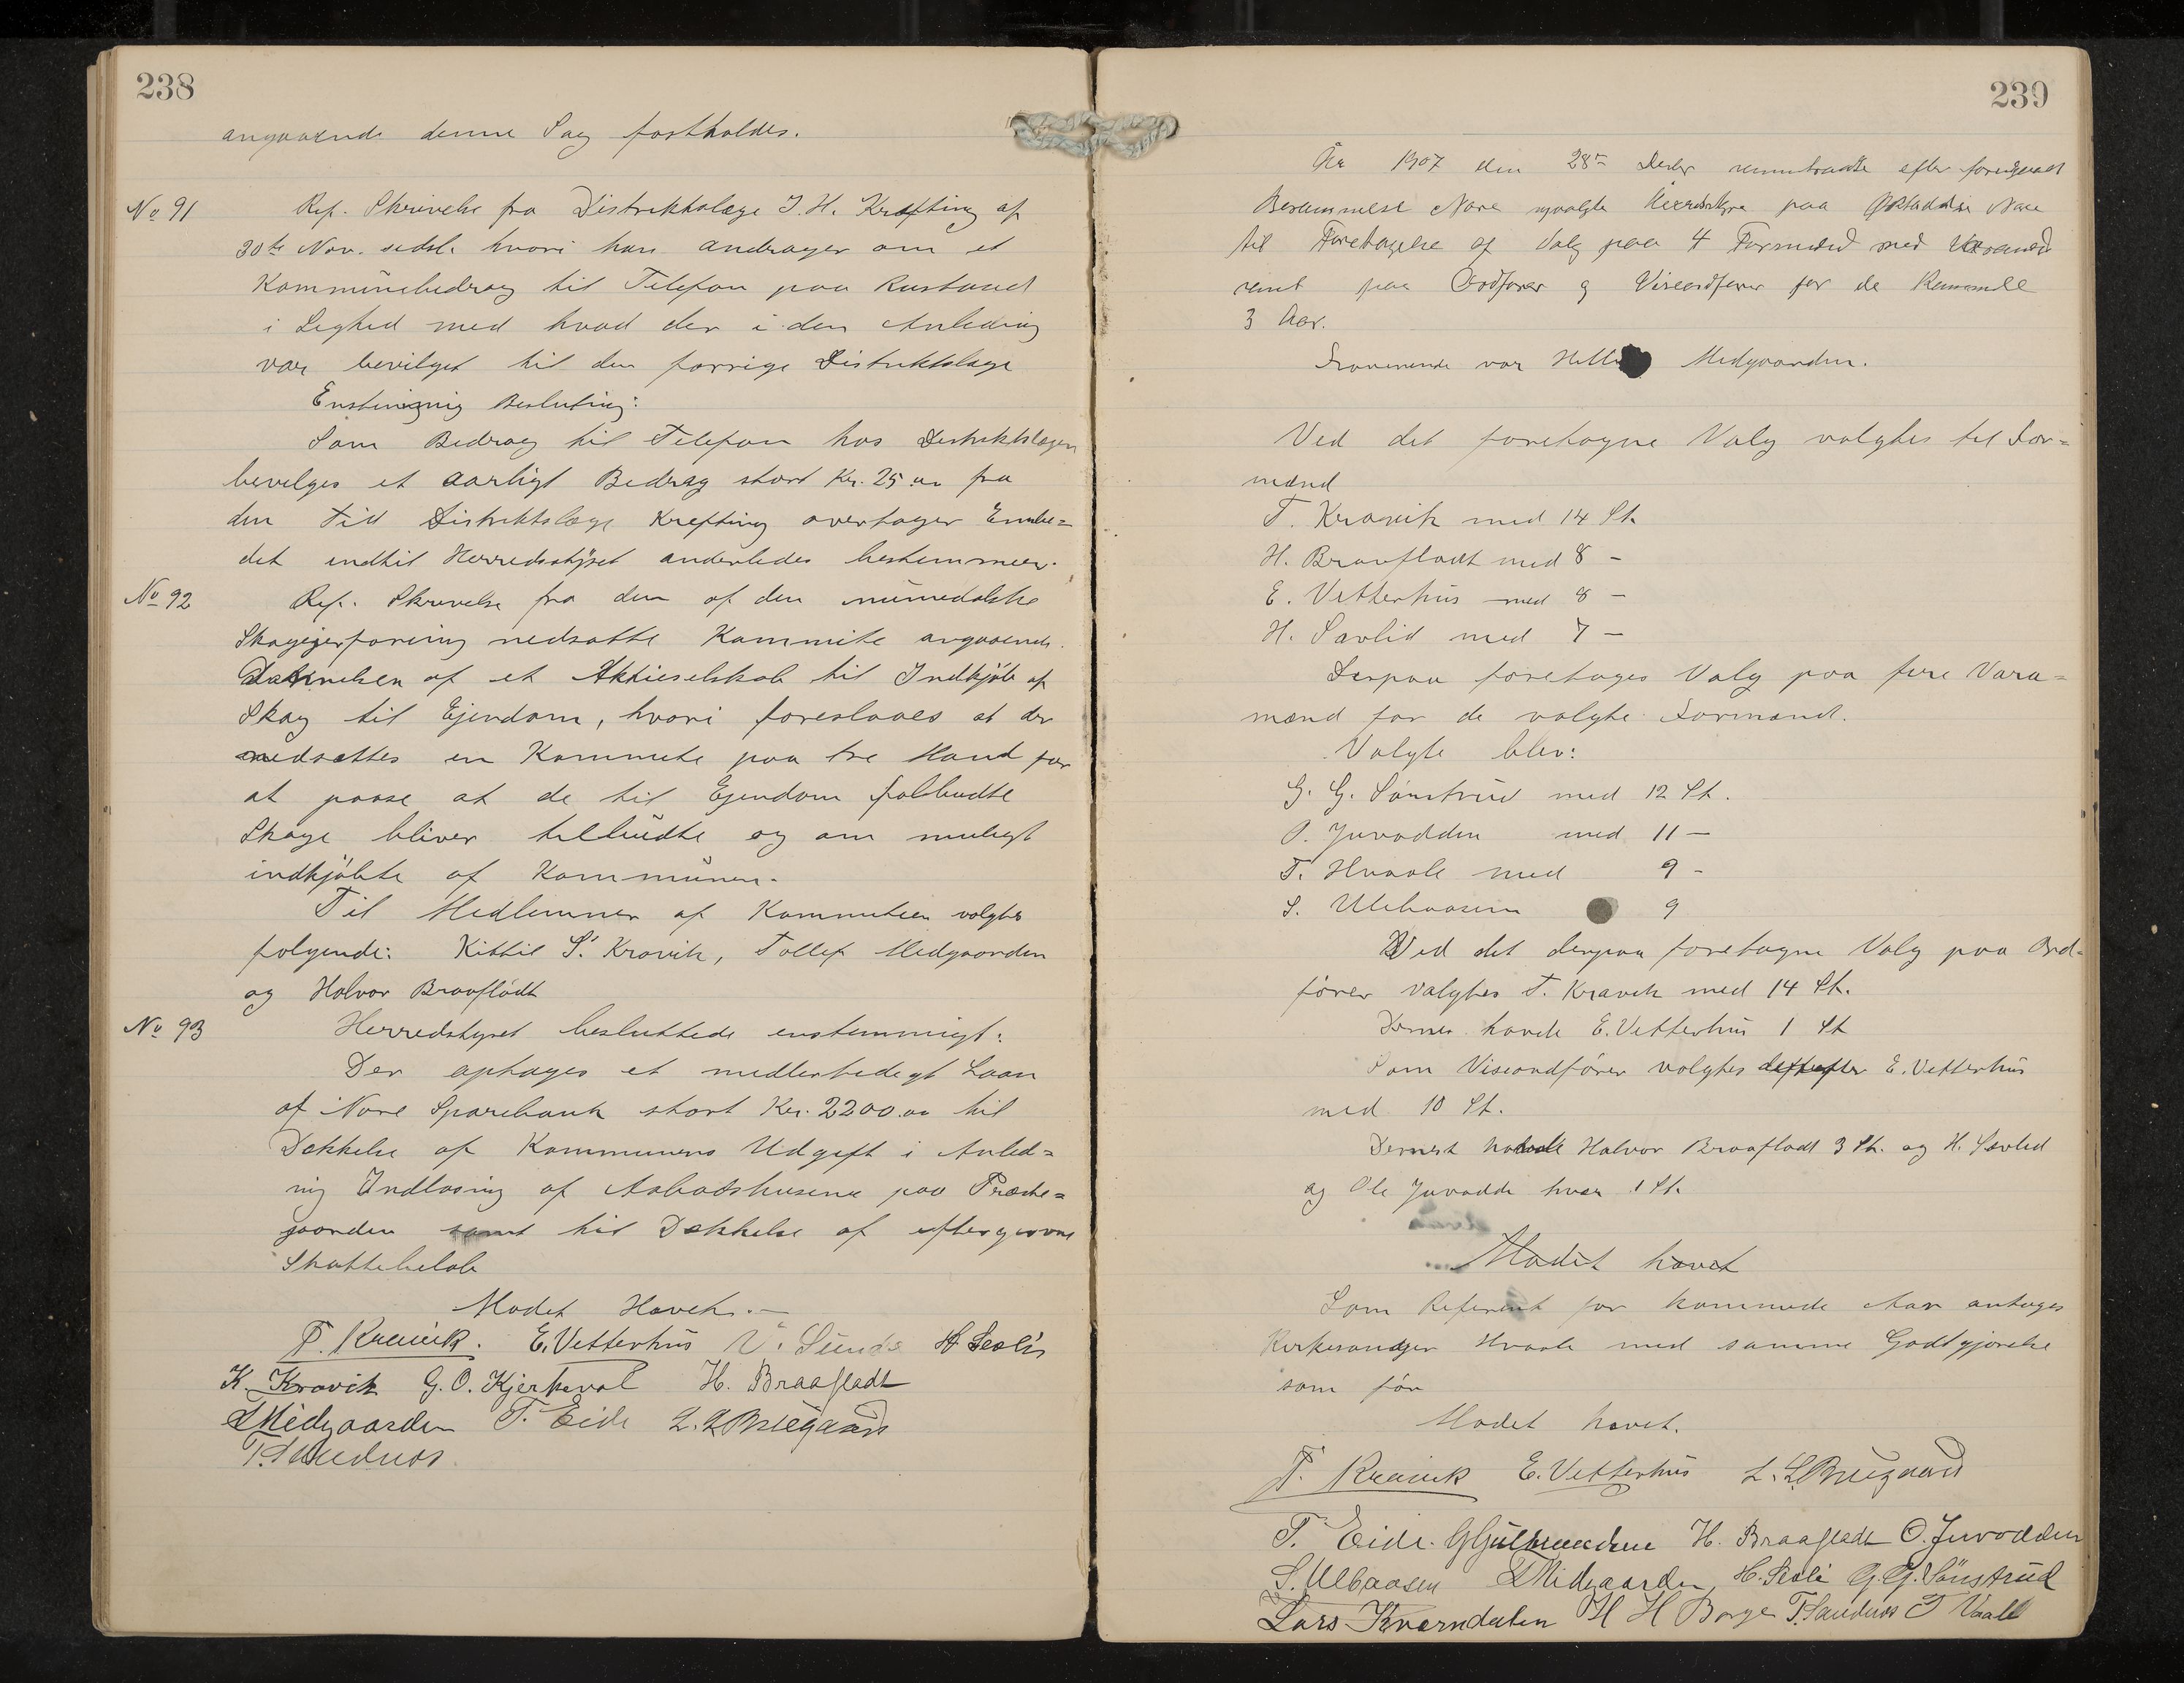 238
angaaende denne Sag fastholdes.
No 91
Ref. Skrivelse fra Distriktslæge J. H. Krefting af
30te Nov. sidste hvori han andrager om et
Kommunebidrag til Telefon paa Rustand
i Lighed med hvad der i den Anledning
var bevilget til den forrige Distriktslæge
Enstemmig Beslutning:
Som Bidrag til Telefon hos Distriktslægen
bevilges et aarligt Bidrag stort Kr. 25.00 fra
den Tid Distriktslæge Krefting overtager Embe=
det indtil Herredsstyret anderledes bestemmer.
No 92
Ref. Skrivelse fra den af den numedalske
Skogeierforening nedsatte Kommite angaaende
Dannelsen af et Aktieselskab til Indkjöb af
Skog til Ejendom, hvori foreslaaes at der
nedsættes en Kommite paa tre Mand for
at paase at de til Ejendom falbudte
Skoge bliver tilbudte og om muligt
indkjöbte af Kommunen.
Til Medlemmer af Kommiteen valgtes
følgende: Kittil S. Kravik, Tollef Medgaarden
og Halvor Braaflådt
No 93
Herredstyret besluttede enstemmigt:
Der optages et midlertidigt Laan
af Nore Sparebank stort Kr. 2200.00 til
Dækkelse af Kommunens Udgift i Anled=
ning Indløsning af Aabodshusene paa Præste=
gaarden samt til Dækkelse af eftergivne
Skattebeløb
Mødet Hævet.—
T. Kravik. E. Vetterhus N. Sunde H. Seoli
K. Kravik G. O. Kjerkevol H. Braafladt
T Medgaarden T. Eide L. L Bruegaard
T. Sandnes.
239
Aar 1907 den 28de Decbr sammentraadte efter foregaaet
Berammelse Nore nyvalgte Herredsstyre paa Nore
til Foretagelse af Valg paa 4 Formænd med Varamænd
samt paa Ordfører og Viseordfører for de kommende
3 Aar.
Fraværende var Medgaarden.
Ved det foretagne Valg valgtes til For=
mænd
T. Kravik med 14 St.
H. Braafladt med 8 —
E. Vetterhus med 8 —
H. Sævlid med 7 —
Derpaa foretoges Valg paa fire Vara=
mænd for de valgte Formænd.
Valgte blev:
G. G. Sønstrud med 12 St.
O. Juvodden med 11 —
T. Hvaale med 9 -
S. Ulebaasen 9
Ved det derpaa foretagne Valg paa Ord=
fører valgtes T. Kravik med 14 St.
Dernæst havde E. Vetterhus 1 St
Som Viseordfører valgtes derefter E. Vetterhus
med 10 St.
Dernæst havde Halvor Braafladt 3 St. og H. Sævlid
og Ole Juvodde hver 1 St.
Mødet hævet
Som Referent for kommende Aar antages
Kirkesanger Hvaale med samme Godtgjørelse
som før
Mødet hævet.
T. Kravik E. Vetterhus L. L. Bruegaard
T. Eide. G Gulbrandsen H. Braafladt O. Juvodden
S. Ulbaasen T Midgaarden H. Seoli G. G. Sönstrud
Lars Kverndalen H H Borge T. Sandnes T Vaale